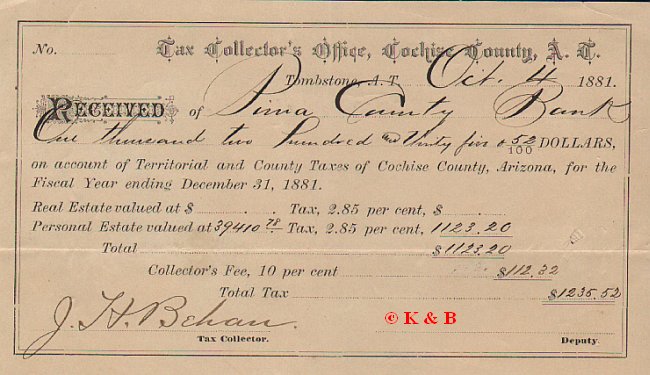 No. Tax Collector's Office, Cochise County, A. T.
Tombstone, A. T. Oct. 4 1881.
RECEIVED of Pima County Bank
One thousand two hundred and thirty five & 52/100 DOLLARS,
on account of Territorial and County Taxes of Cochise County, Arizona, for the
Fiscal Year ending December 31, 1881.
Real Estate valued at $ Tax, 2.85 per cent, $
Personal Estate valued at 39410 78 Tax, 2.85 per cent, 1123.20
Total $1123.20
Collector's Fee, 10 per cent $112.32
Total Tax $1235.52
J. H. Behan.
© K & B
Tax Collector. Deputy